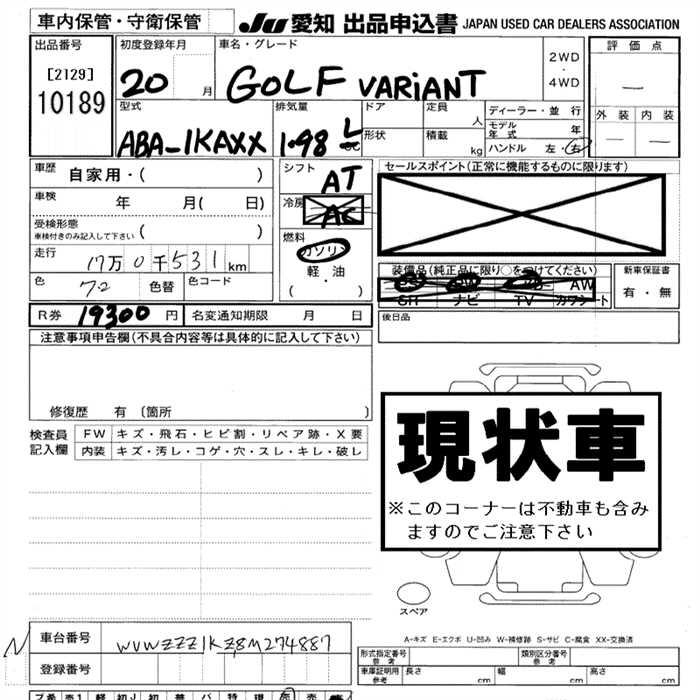 車内保管・守衛保管
JU 愛知 出品申込書 JAPAN USED CAR DEALERS ASSOCIATION
出品番号
[2129]
10189
初度登録年月
20 月
車名・グレード
GOLF VARIANT
2WD
・
4WD
評価点
—
外装 内装
— —
型式
ABA-1KAXX
排気量
1.98 L
ドア
形状
定員 人
積載 kg
ディーラー・並行
モデル年式 年
ハンドル 左・右
車歴
自家用・( )
車検
年 月( 日)
受検形態
車検付きのみ記入して下さい ( )
走行
17万0千531km
色
色替
色コード
シフト
AT
冷房
AC
燃料
ガソリン
軽・油
( ・ )
セールスポイント(正常に機能するものに限ります)
装備品(純正品に限り○をつけてください)
AW
SH ナビ TV カワシート
新車保証書
有・無
R券 19300円
名変通知期限 月 日
後日品
注意事項申告欄(不具合内容等は具体的に記入して下さい)
修復歴 有〔箇所 〕
検査員記入欄
FW キズ・飛石・ヒビ割・リペア跡・X要
内装 キズ・汚レ・コゲ・穴・スレ・キレ・破レ
現状車
※このコーナーは不動車も含み
ますのでご注意下さい
スペア
A-キズ E-エクボ U-凹み W-補修跡 S-サビ C-腐食 XX-交換済
N
車台番号
WVWZZZ1KZ8M274887
登録番号
形式指定番号
参考
類別区分番号
参考
車庫証明用
参考
長さ cm
幅 cm
高さ cm